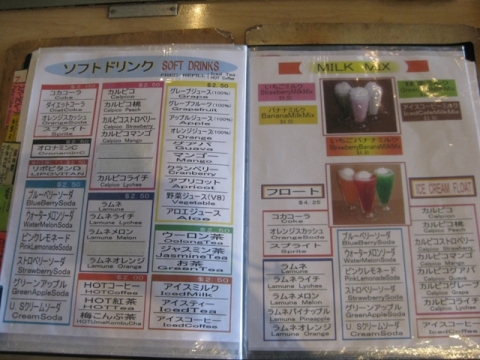 ソフトドリンク SOFT DRINKS
コカコーラ
Coke
ダイエットコーラ
オレンジスカッシュ
スプライト
Sprite
オロナミンC
リポビタンD
LIPOVITAN
$2.50
ブルーベリーソーダ
ウォーターメロンソーダ
WaterMelonSoda
ピンクレモネード
PinkLemonadeSoda
ストロベリーソーダ
StrawberrySoda
グリーンアップル
GreenAppleSoda
U.Sクリームソーダ
CreamSoda
カルピコ
Calpico
カルピコ桃
Calpico Peach
カルピコストロベリー
Calpico Strawberry
カルピコマンゴ
Calpico Mango
カルピコライチ
Calpico Lychee
ラムネ
Lamune
ラムネライチ
Lamune Lychee
ラムネメロン
Lamune Melon
ラムネオレンジ
Lamune Orange
HOTコーヒー
HOTCoffee
HOT紅茶
HOTTea
梅こんぶ茶
グレープジュース(100%)
Grape
グレープフルーツ(100%)
Grapefruit
アップルジュース(100%)
Apple
オレンジジュース(100%)
Orange
グアバ
Guava
マンゴー
Mango
クランベリー
Cranberry
アプリコット
Apricot
野菜ジュース(V8)
Vegetable
アロエジュース
Aloe
ウーロン茶
OolongTea
ジャスミン茶
JasmineTea
お茶
GreenTea
アイスミルク
IcedMilk
アイスティー
IcedTea
アイスコーヒー
IcedCoffee
MILK MIX
いちごミルク
StrawberryMilkMix
バナナミルク
BananaMilkMix
アイスコーヒーミルク
いちごバナナミルク
フロート
ICE CREAM FLOAT
コカコーラ
Coke
オレンジスカッシュ
スプライト
Sprite
ラムネ
Lamune
ラムネライチ
Lamune Lychee
ラムネメロン
Lamune Melon
ラムネパイナップル
ラムネオレンジ
Lamune Orange
ブルーベリーソーダ
BlueBerrySoda
ウォーターメロンソーダ
ピンクレモネード
ストロベリーソーダ
StrawberrySoda
グリーンアップル
GreenAppleSoda
U.Sクリームソーダ
CreamSoda
カルピコ
カルピコ桃
アイスコーヒー
IcedCoffee